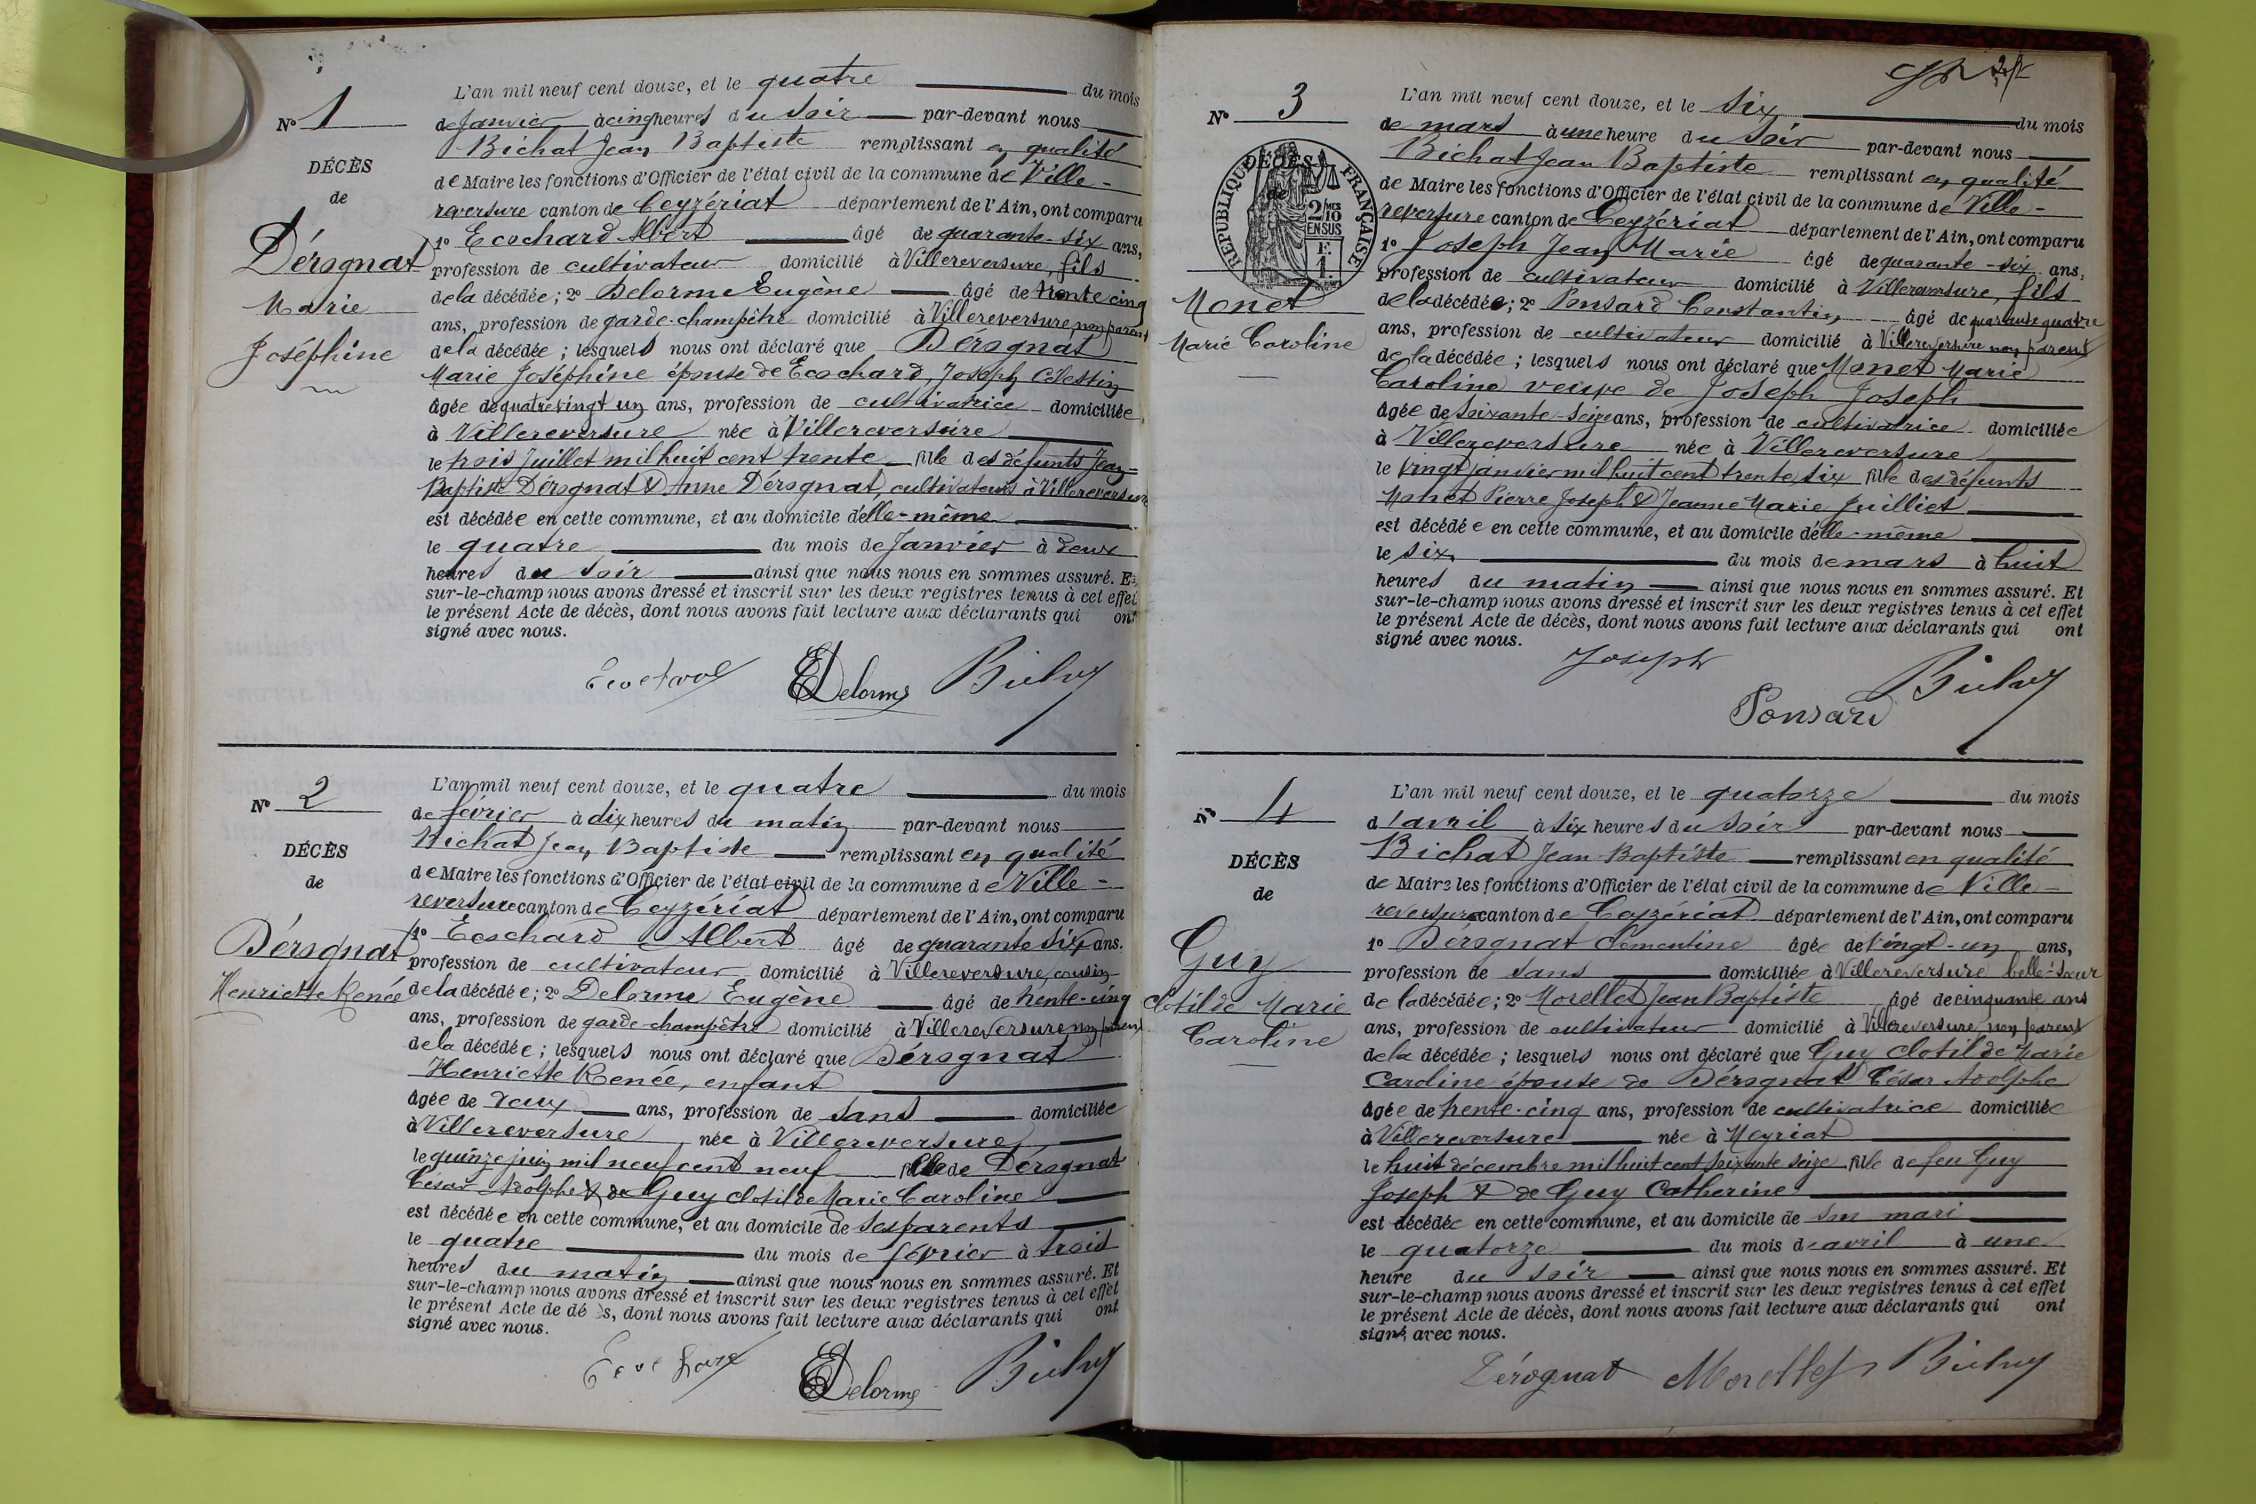 N° 1
DÉCÈS
de
Dérognat
Marie
Joséphine
L'an mil neuf cent douze, et le quatre du mois
de Janvier à cinq heures du soir par-devant nous
Bichat Jean Baptiste remplissant en qualité
de Maire les fonctions d'Officier de l'état civil de la commune de Ville-
reversure canton de Ceyzériat département de l'Ain, ont comparu
1° Ecochard Albert âgé de quarante-six ans,
profession de cultivateur domicilié à Villereversure, fils
de la décédée; 2° Delorme Eugène âgé de trente cinq
ans, profession de garde-champêtre domicilié à Villereversure non parent
de la décédée; lesquels nous ont déclaré que Dérognat
Marie Joséphine épouse de Ecochard, Joseph Célestin
âgée de quatre vingt un ans, profession de cultivatrice domiciliée
à Villereversure née à Villereversure
le trois Juillet mil huit cent trente fille des défunts Jean-
Baptiste Dérognat & Anne Dérognat, cultivateurs à Villereversure
est décédée en cette commune, et au domicile d'elle-même
le quatre du mois de Janvier à deux
heures du soir ainsi que nous nous en sommes assuré. Et
sur-le-champ nous avons dressé et inscrit sur les deux registres tenus à cet effet
le présent Acte de décès, dont nous avons fait lecture aux déclarants qui ont
signé avec nous.
EDelorme
N° 2
DÉCÈS
de
Dérognat
Henriette Renée
L'an mil neuf cent douze, et le quatre du mois
de février à dix heures du matin par-devant nous
Bichat Jean Baptiste remplissant en qualité
de Maire les fonctions d'Officier de l'état civil de la commune de Ville-
reversure canton de Ceyzériat département de l'Ain, ont comparu
1° Ecochard Albert âgé de quarante six ans.
profession de cultivateur domicilié à Villereversure, cousin
de la décédée; 2° Delorme Eugène âgé de trente-cinq
ans, profession de garde-champêtre domicilié à Villereversure non parent
de la décédée; lesquels nous ont déclaré que Dérognat
Henriette Renée, enfant
âgée de deux ans, profession de sans domiciliée
à Villereversure née à Villereversure
le quinze juin mil neuf cent neuf fille de Dérognat
César Adolphe & de Guy Clotilde Marie Caroline
est décédée en cette commune, et au domicile de ses parents
le quatre du mois de février à trois
heures du matin ainsi que nous nous en sommes assuré. Et
sur-le-champ nous avons dressé et inscrit sur les deux registres tenus à cet effet
le présent Acte de décès, dont nous avons fait lecture aux déclarants qui ont
signé avec nous.
EDelorme
N° 3
RÉPUBLIQUE FRANÇAISE
DÉCÈS
de
2/10 MES
EN SUS
F.
1.
Monet
Marie Caroline
L'an mil neuf cent douze, et le six du mois
de mars à une heure du soir par-devant nous
Bichat Jean Baptiste remplissant en qualité
de Maire les fonctions d'Officier de l'état civil de la commune de Ville-
reversure canton de Ceyzériat département de l'Ain, ont comparu
1° Joseph Jean Marie âgé de quarante-six ans,
profession de cultivateur domicilié à Villereversure, fils
de la décédée; 2° Ponsard Constantin âgé de quarante quatre
ans, profession de cultivateur domicilié à Villereversure non parent
de la décédée; lesquels nous ont déclaré que Monet Marie
Caroline veuve de Joseph Joseph
âgée de soixante-seize ans, profession de cultivatrice domiciliée
à Villereversure née à Villereversure
le vingt janvier mil huit cent trente six fille des défunts
Monet Pierre Joseph & Jeanne Marie Juilliet
est décédée en cette commune, et au domicile d'elle-même
le six du mois de mars à huit
heures du matin ainsi que nous nous en sommes assuré. Et
sur-le-champ nous avons dressé et inscrit sur les deux registres tenus à cet effet
le présent Acte de décès, dont nous avons fait lecture aux déclarants qui ont
signé avec nous.
Joseph
Ponsard
N° 4
DÉCÈS
de
Guy
Clotilde Marie
Caroline
L'an mil neuf cent douze, et le quatorze du mois
d'avril à six heures du soir par-devant nous
Bichat Jean Baptiste remplissant en qualité
de Maire les fonctions d'Officier de l'état civil de la commune de Ville-
reversure canton de Ceyzériat département de l'Ain, ont comparu
1° Dérognat Clémentine âgée de vingt-un ans,
profession de sans domiciliée à Villereversure belle-sœur
de la décédée; 2° Morellet Jean Baptiste âgé de cinquante ans
ans, profession de cultivateur domicilié à Villereversure, non parent
de la décédée; lesquels nous ont déclaré que Guy Clotilde Marie
Caroline épouse de Dérognat César Adolphe
âgée de trente-cinq ans, profession de cultivatrice domiciliée
à Villereversure née à Meyriat
le huit décembre mil huit cent soixante seize fille de feu Guy
Joseph & de Guy Catherine
est décédée en cette commune, et au domicile de son mari
le quatorze du mois d'avril à une
heure du soir ainsi que nous nous en sommes assuré. Et
sur-le-champ nous avons dressé et inscrit sur les deux registres tenus à cet effet
le présent Acte de décès, dont nous avons fait lecture aux déclarants qui ont
signé avec nous.
Dérognat Morellet